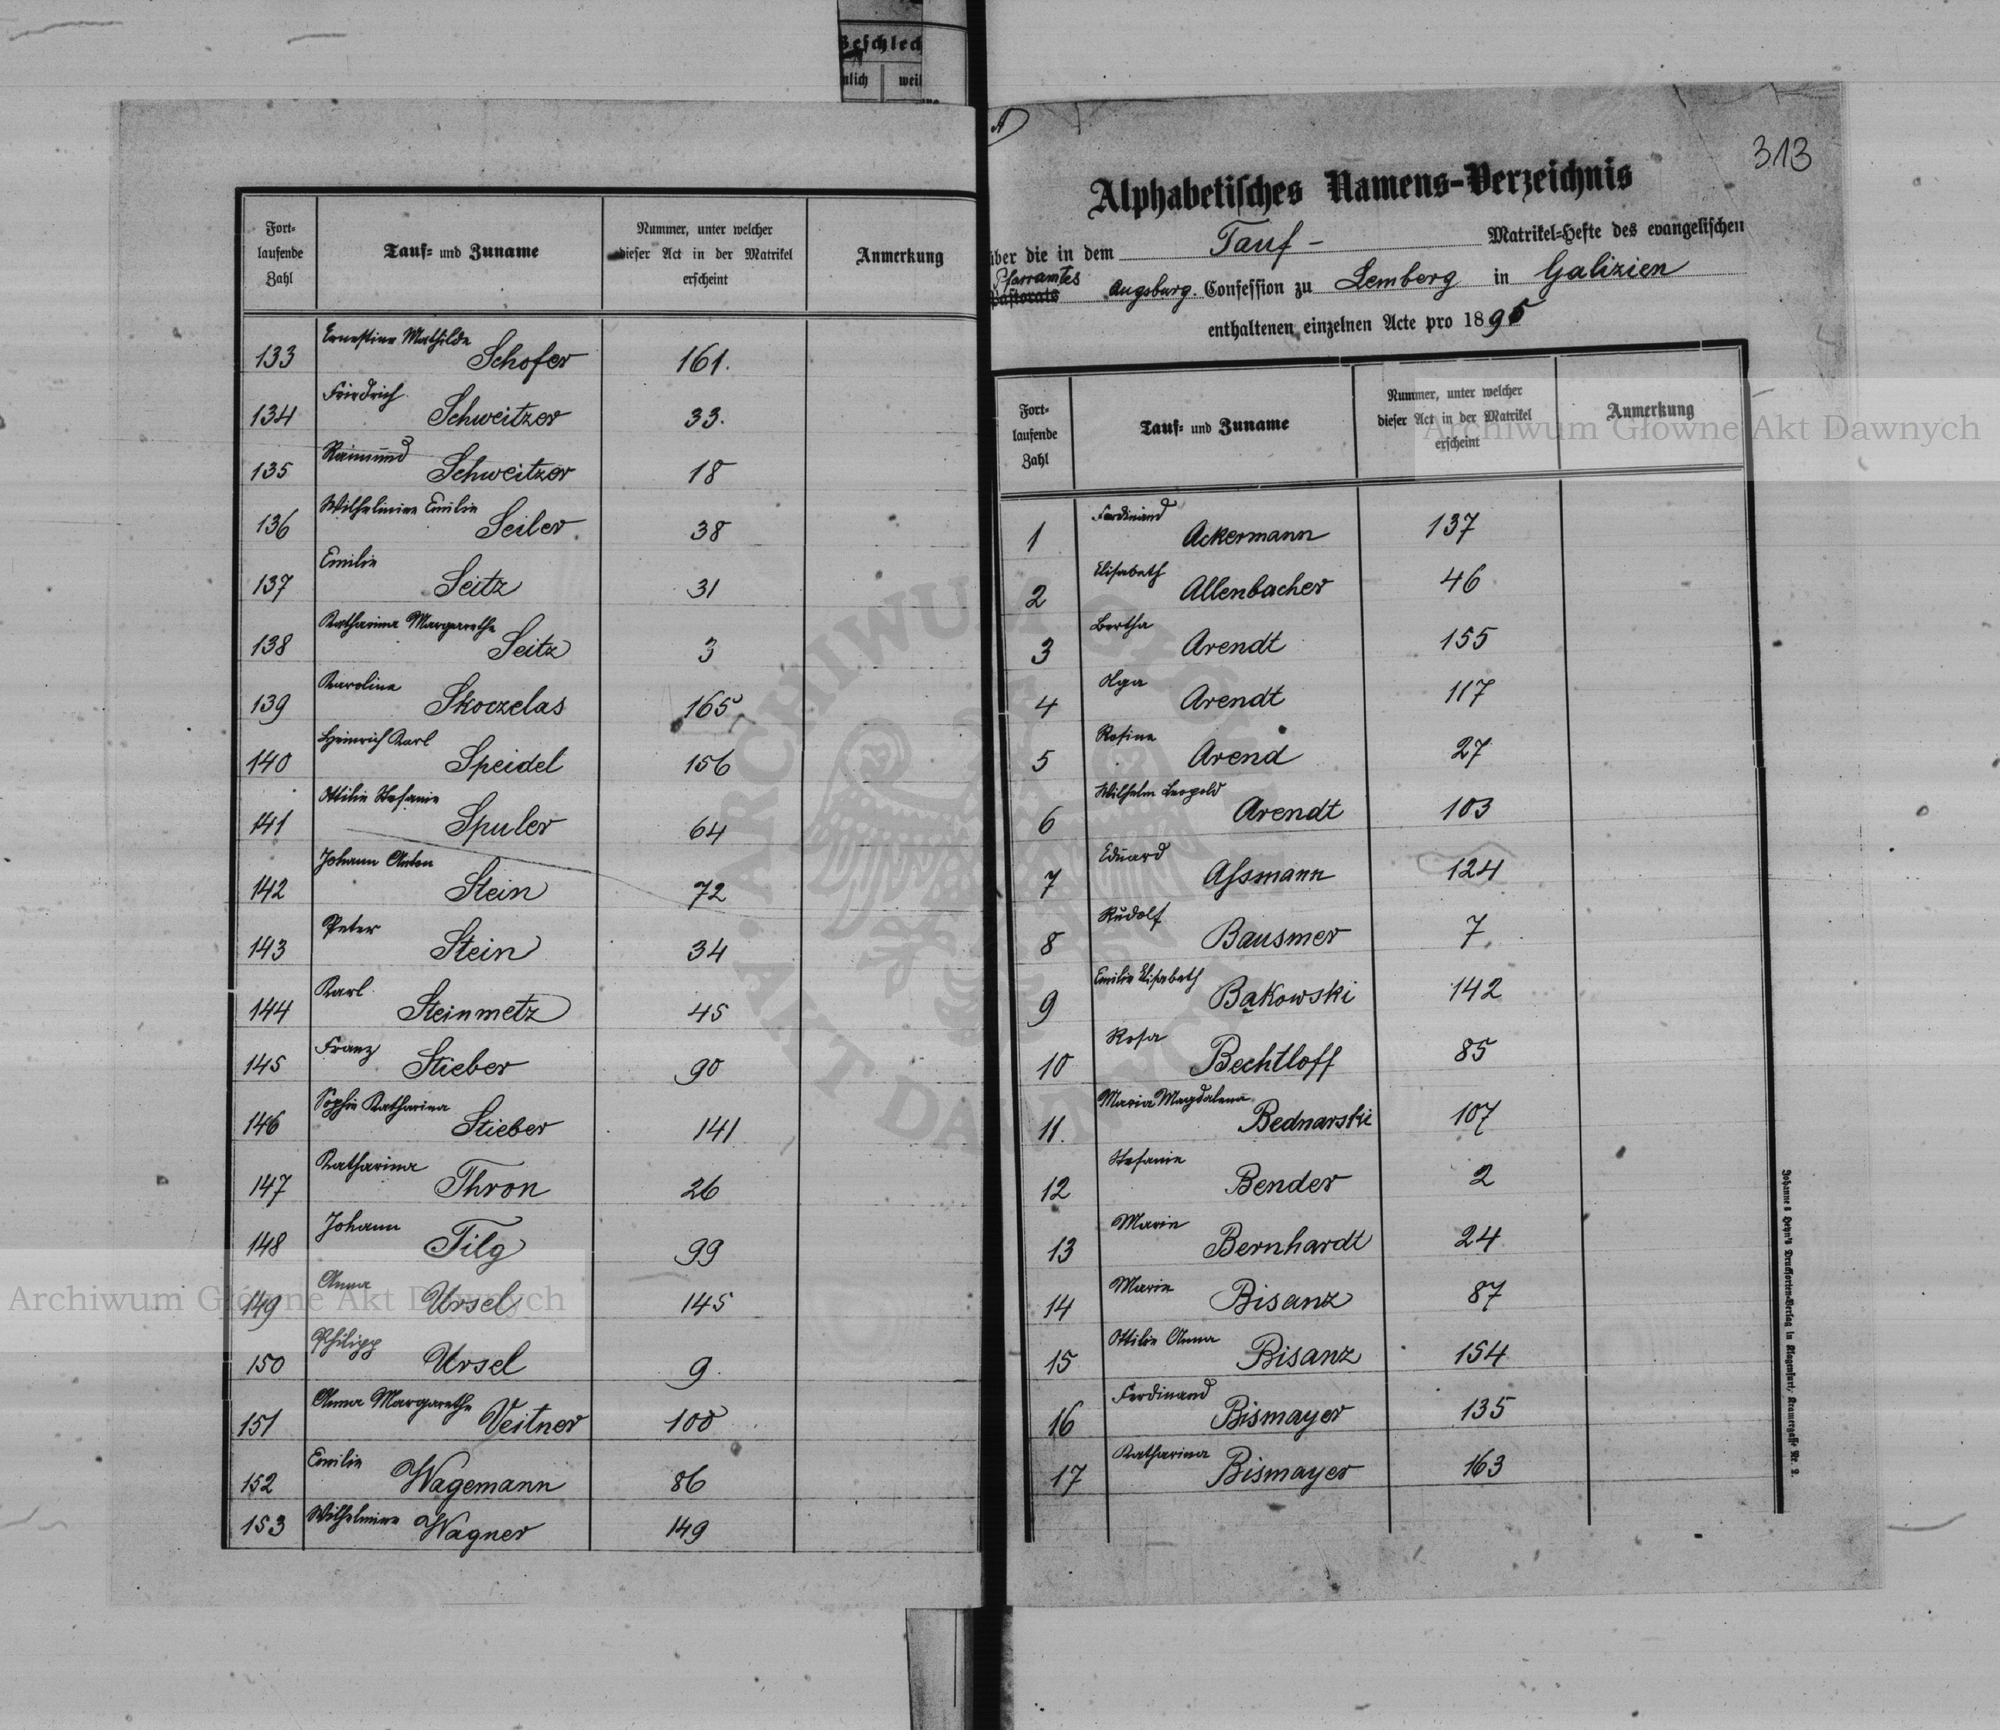 Geschlech
nlich weil
Fort-
laufende
Zahl
Tauf= und Zuname
Nummer, unter welcher
dieser Act in der Matrikel
erscheint
Anmerkung
133 Ernestine Mathilde Schofer 161.
134 Friedrich Schweitzer 33.
135 Raimund Schweitzer 18
136 Wilhelmine Emilie Seiler 38
137 Emilie Seitz 31
138 Katharina Margarethe Seitz 3
139 Karoline Skoczelas 165
140 Heinrich Karl Speidel 156
141 Ottilie Stefanie Spuler 64
142 Johann Anton Stein 72
143 Peter Stein 34
144 Karl Steinmetz 45
145 Franz Stieber 90
146 Sophie Katharina Stieber 141
147 Katharina Thron 26
148 Johann Tilg 99
149 Anna Ursel 145
150 Philipp Ursel 9.
151 Anna Margarethe Veitner 100
152 Emilie Wagemann 86
153 Wilhelmine Wagner 149
A
313
Alphabetisches Namens-Verzeichnis
über die in dem Tauf- Matrikel=Hefte des evangelischen
Pfarramtes
Pastorats Augsburg. Confession zu Lemberg in Galizien
enthaltenen einzelnen Acte pro 1895
Fort-
laufende
Zahl
Tauf= und Zuname
Nummer, unter welcher
dieser Act in der Matrikel
erscheint
Anmerkung
1 Ferdinand Ackermann 137
2 Elisabeth Allenbacher 46
3 Bertha Arendt 155
4 Olga Arendt 117
5 Rosina Arend 27
6 Wilhelm Leopold Arendt 103
7 Eduard Assmann 124
8 Rudolf Bausmer 7.
9 Emilie Elisabeth Bąkowski 142
10 Rosa Bechtloff 85
11. Maria Magdalena Bednarski 107
12 Stefanie Bender 2
13 Marie Bernhardt 24
14 Marie Bisanz 87
15 Ottilie Anna Bisanz 154
16 Ferdinand Bismayer 135
17 Katharina Bismayer 163
Johannes Heyn's Drucksorten-Verlag in Klagenfurt, Kramergasse Nr. 2.
Archiwum Główne Akt Dawnych
Archiwum Główne Akt Dawnych
ARCHIWUM GŁÓWNE AKT DAWNYCH